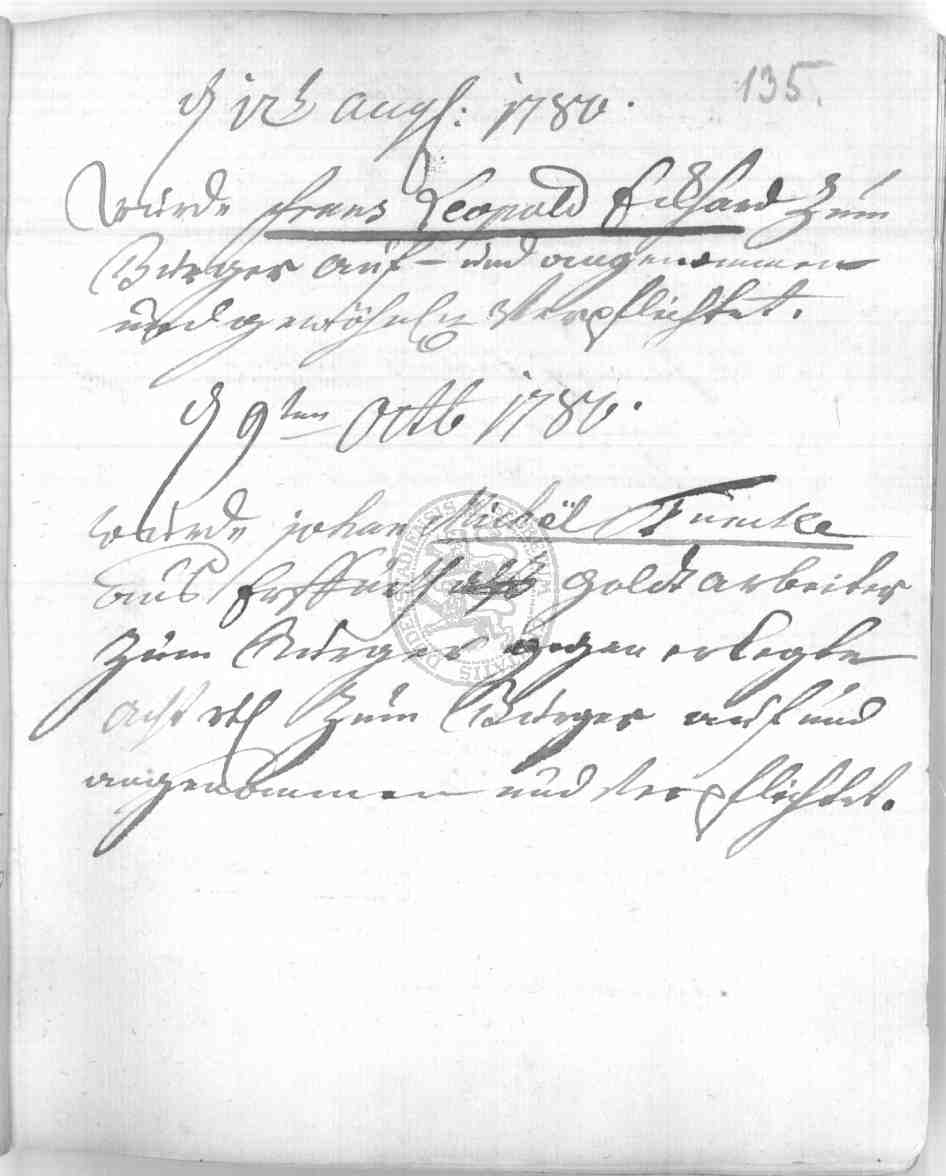 135.
d 12t aug: 1780.
wurde frans Leopold Eckhard zum
Burger auf- und angenommen
und gewöhnl verpflichtet.
d 9ten Octb 1780.
wurde johan Michël Funcke
aus goldt arbeiter
zum Burger gegen erlegte
acht rth zum Burger auf und
angenommen und verpflichtet.